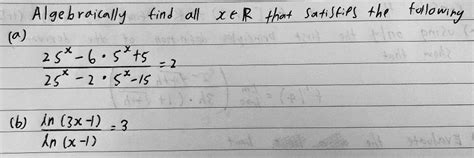 Algebraically find all x ∈ R that satisfies the following
(a)
25^x - 6 · 5^x + 5
———————— = 2
25^x - 2 · 5^x - 15
(b) ln (3x-1)
———— = 3
ln (x-1)